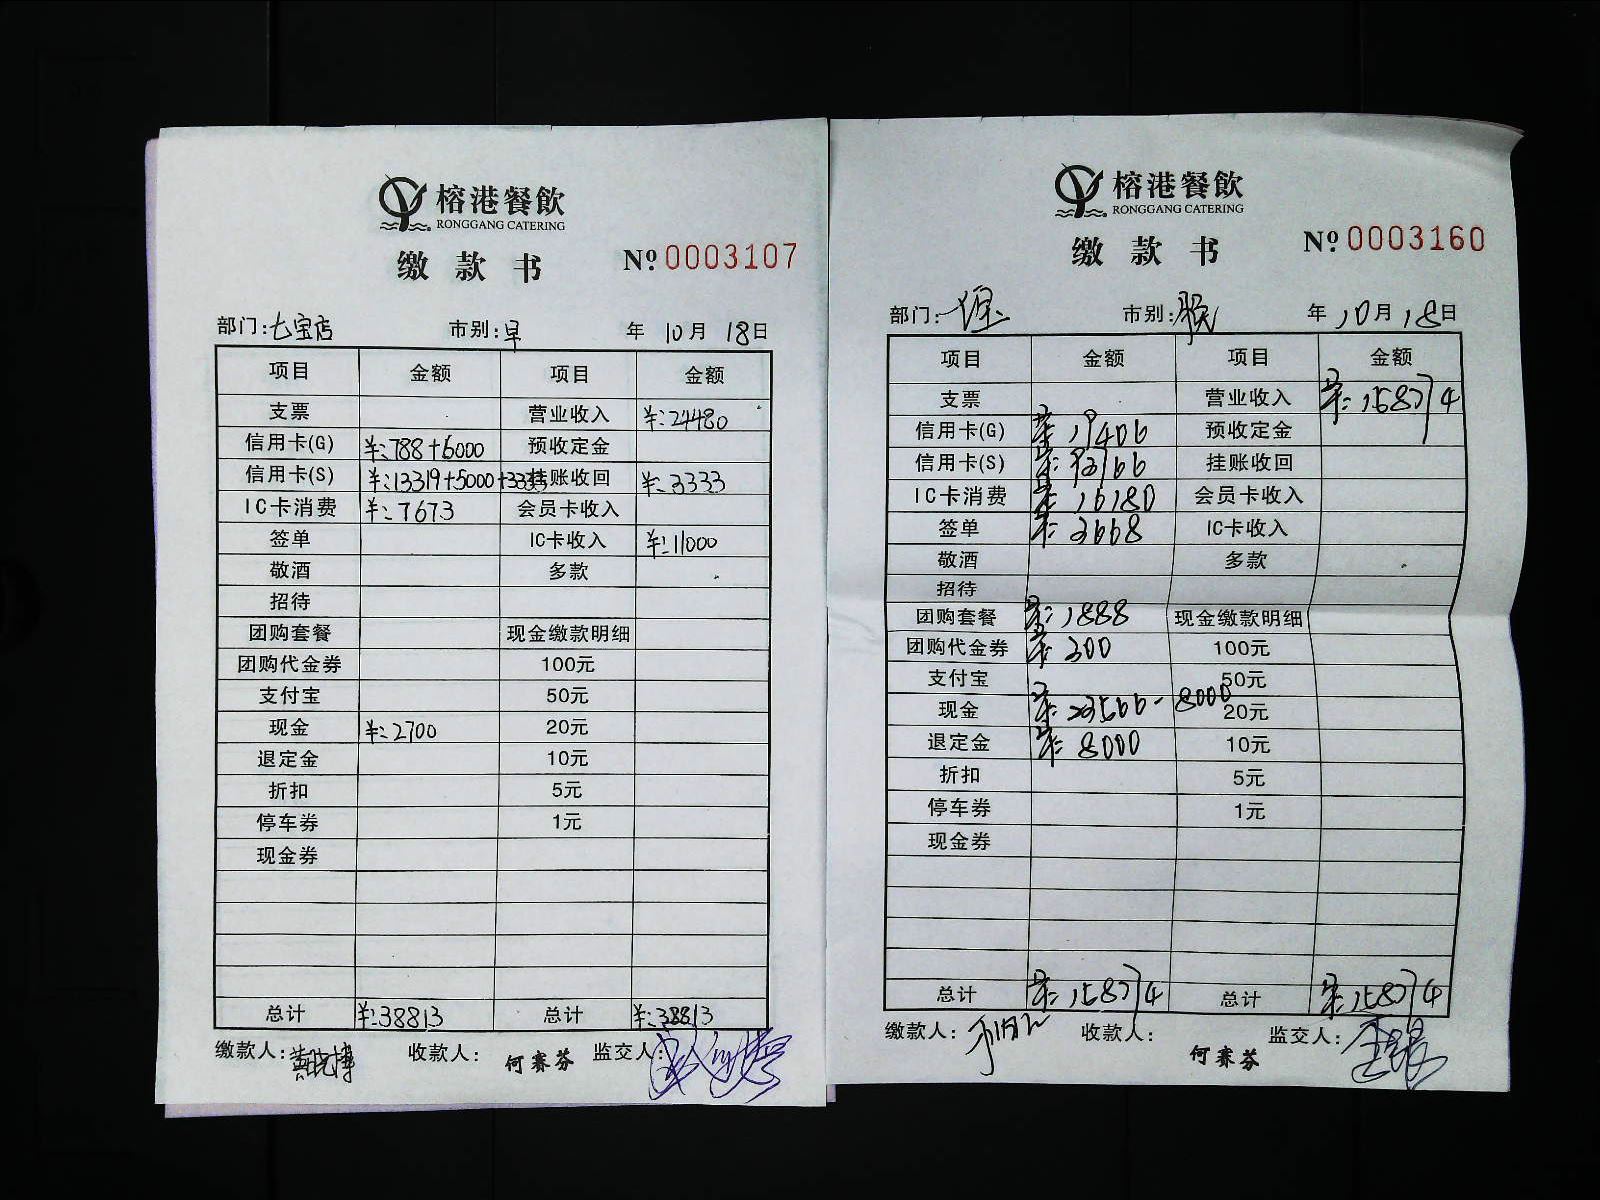 榕港餐飲
RONGGANG CATERING
缴款书 Nº 0003107
部门:七宝店 市别:早 年 10月 18日
项目 金额 项目 金额
支票 营业收入 ¥:24480
信用卡(G) ¥:788+6000 预收定金
信用卡(S) ¥:13319+5000+3333 挂账收回 ¥:3333
IC卡消费 ¥:7673 会员卡收入
签单 IC卡收入 ¥:11000
敬酒 多款
招待
团购套餐 现金缴款明细
团购代金券 100元
支付宝 50元
现金 ¥:2700 20元
退定金 10元
折扣 5元
停车券 1元
现金券
总计 ¥:38813 总计 ¥:38813
缴款人: 收款人:何赛芬 监交人:
榕港餐飲
RONGGANG CATERING
缴款书 Nº 0003160
部门: 市别:晚 年 10月 18日
项目 金额 项目 金额
支票 营业收入 ¥:158774
信用卡(G) ¥:19406 预收定金
信用卡(S) ¥:93766 挂账收回
IC卡消费 ¥:16180 会员卡收入
签单 ¥:3668 IC卡收入
敬酒 多款
招待
团购套餐 ¥:1888 现金缴款明细
团购代金券 ¥:300 100元
支付宝 50元
现金 ¥:23566-8000 20元
退定金 ¥:8000 10元
折扣 5元
停车券 1元
现金券
总计 ¥:158774 总计 ¥:158774
缴款人: 收款人:何赛芬 监交人: